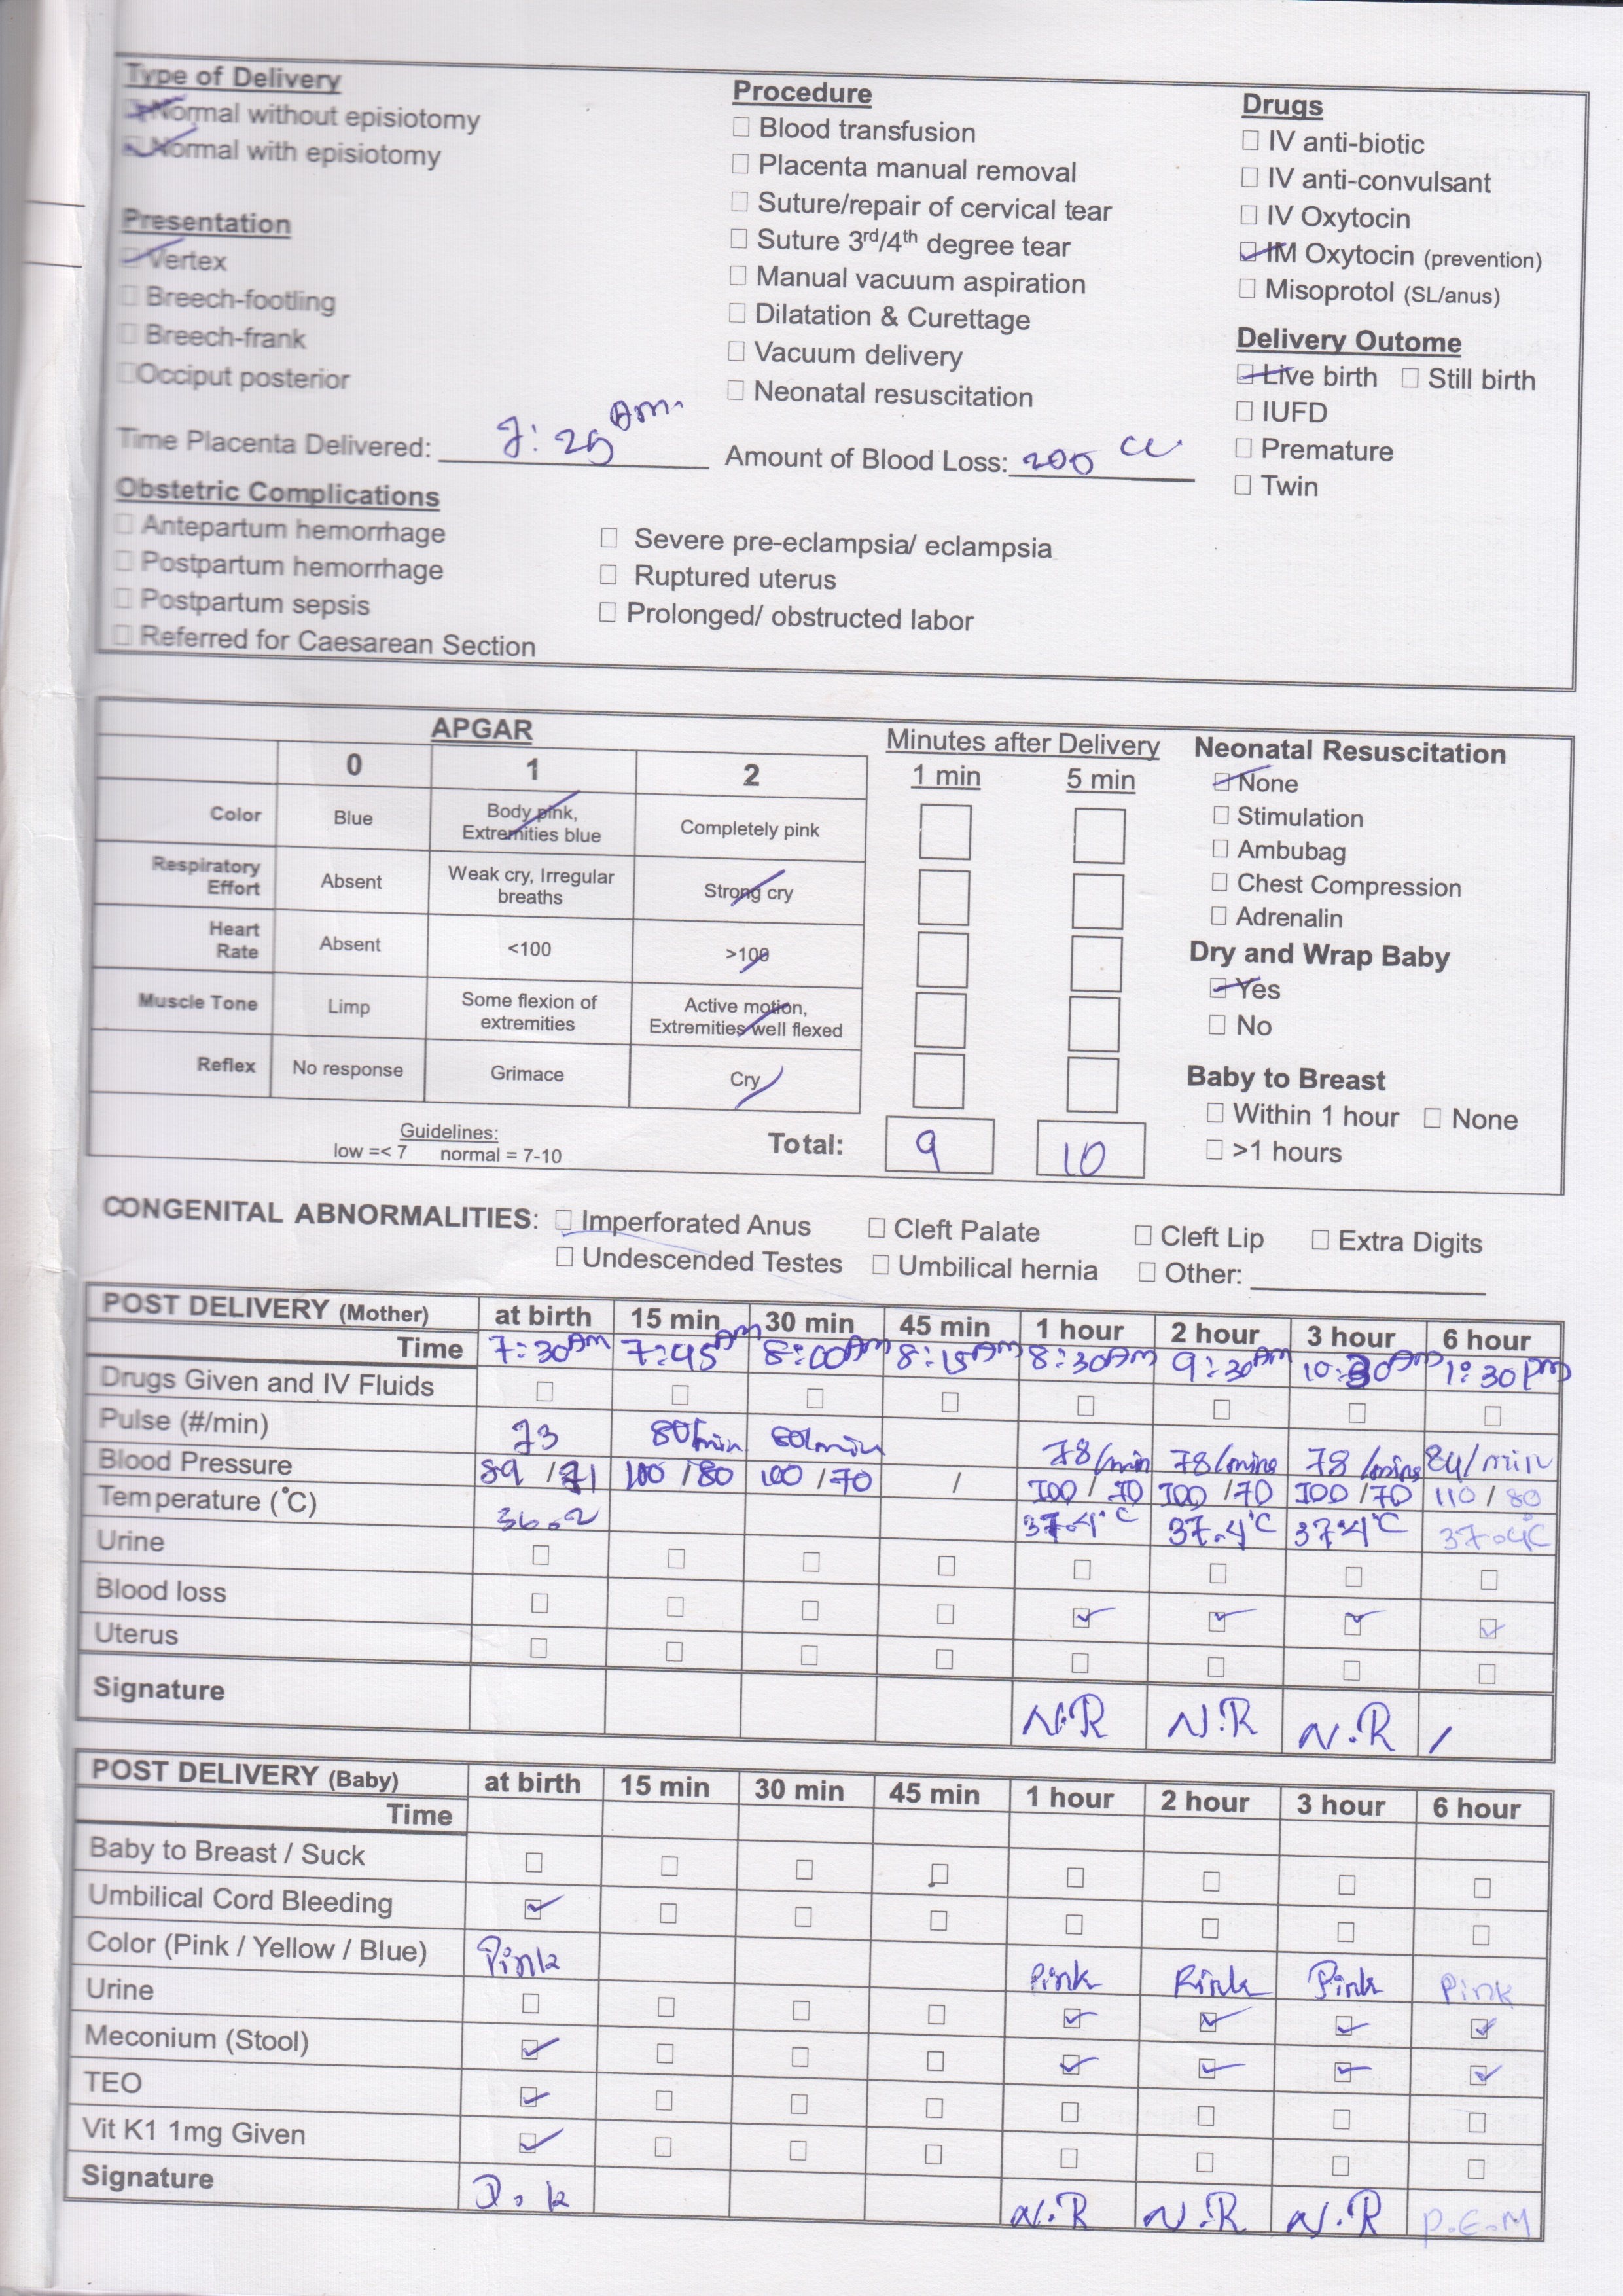 Type of Delivery
Normal without episiotomy
Normal with episiotomy
Presentation
Vertex
Breech-footling
Breech-frank
Occiput posterior
Procedure
Blood transfusion
Placenta manual removal
Suture/repair of cervical tear
Suture 3rd/4th degree tear
Manual vacuum aspiration
Dilatation & Curettage
Vacuum delivery
Neonatal resuscitation
Drugs
IV anti-biotic
IV anti-convulsant
IV Oxytocin
IM Oxytocin (prevention)
Misoprotol (SL/anus)
Delivery Outome
Live birth Still birth
IUFD
Premature
Twin
Time Placenta Delivered: 7:25 Am. Amount of Blood Loss: 200 cc
Obstetric Complications
Antepartum hemorrhage
Postpartum hemorrhage
Postpartum sepsis
Referred for Caesarean Section
Severe pre-eclampsia/ eclampsia
Ruptured uterus
Prolonged/ obstructed labor
APGAR
0 1 2
Color Blue Body pink, Extremities blue Completely pink
Respiratory Effort Absent Weak cry, Irregular breaths Strong cry
Heart Rate Absent <100 >100
Muscle Tone Limp Some flexion of extremities Active motion, Extremities well flexed
Reflex No response Grimace Cry
Guidelines:
low =< 7 normal = 7-10
Minutes after Delivery
1 min 5 min
Total: 9 10
Neonatal Resuscitation
None
Stimulation
Ambubag
Chest Compression
Adrenalin
Dry and Wrap Baby
Yes
No
Baby to Breast
Within 1 hour None
>1 hours
CONGENITAL ABNORMALITIES: Imperforated Anus Cleft Palate Cleft Lip Extra Digits
Undescended Testes Umbilical hernia Other:
POST DELIVERY (Mother) at birth 15 min 30 min 45 min 1 hour 2 hour 3 hour 6 hour
Time 7:30AM 7:45AM 8:00AM 8:15AM 8:30AM 9:30AM 10:30AM 1:30pm
Drugs Given and IV Fluids
Pulse (#/min) 73 80/min 80/min 78/min 78/mins 78/mins 84/min
Blood Pressure 89/71 100/80 100/70 / 100/70 100/70 100/70 110/80
Temperature (°C) 36.2 37.4°C 37.4°C 37.4°C 37.4°C
Urine
Blood loss
Uterus
Signature N.R N.R N.R
POST DELIVERY (Baby) at birth 15 min 30 min 45 min 1 hour 2 hour 3 hour 6 hour
Time
Baby to Breast / Suck
Umbilical Cord Bleeding
Color (Pink / Yellow / Blue) Pink Pink Pink Pink Pink
Urine
Meconium (Stool)
TEO
Vit K1 1mg Given
Signature N.R N.R N.R P.E.M